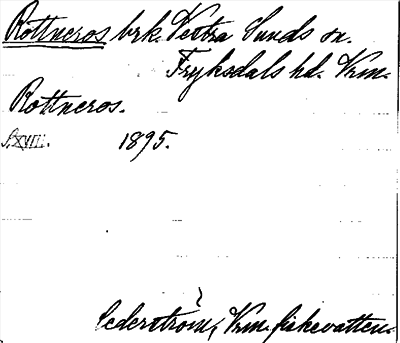 Rottneros brk. Vestra Sunds sn.
Fryksdals hd. Vrm.
Rottneros.
S. XVIII. 1895.
Cederström, Vrm. fiskevatten.